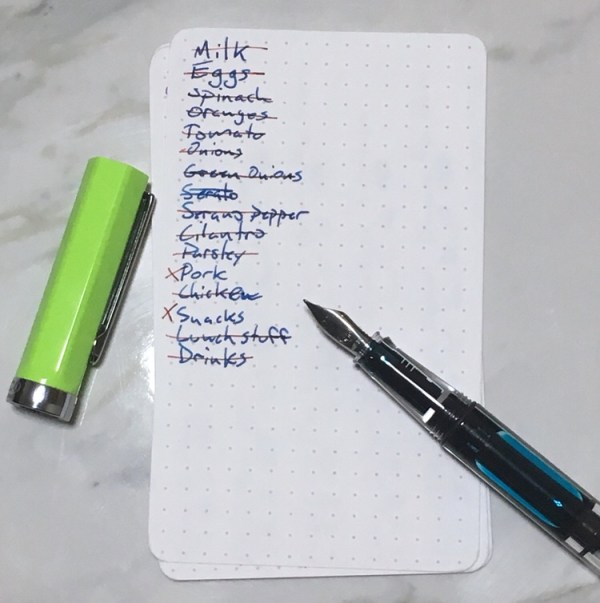 Milk
Eggs
Spinach
Oranges
Tomato
Onions
Green Onions
Serano Pepper
Cilantro
Parsley
X Pork
Chicken
X Snacks
Lunch stuff
Drinks